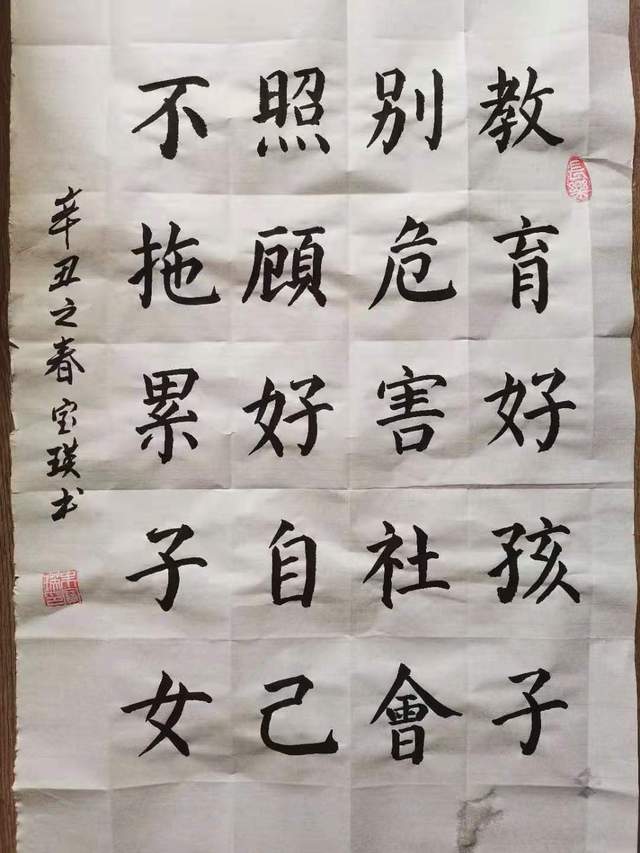 教育好孩子
别危害社會
照顧好自己
不拖累子女
辛丑之春宝瑛书
長樂